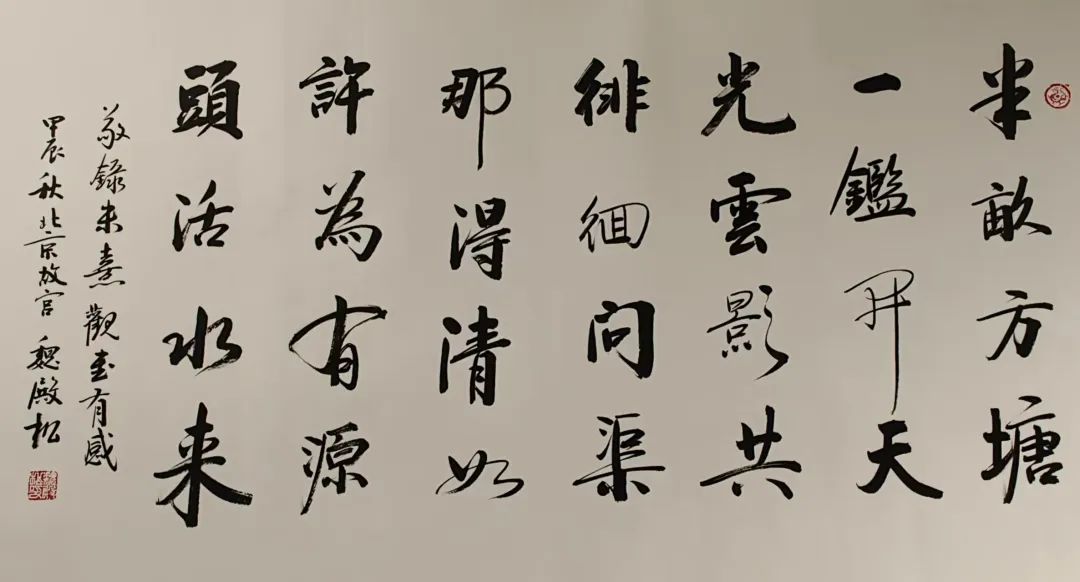 半畝方塘
一鑑開天
光雲影共
徘徊問渠
那得清如
許為有源
頭活水来
敬錄朱熹觀書有感
甲辰秋北京故宫 魏殿松